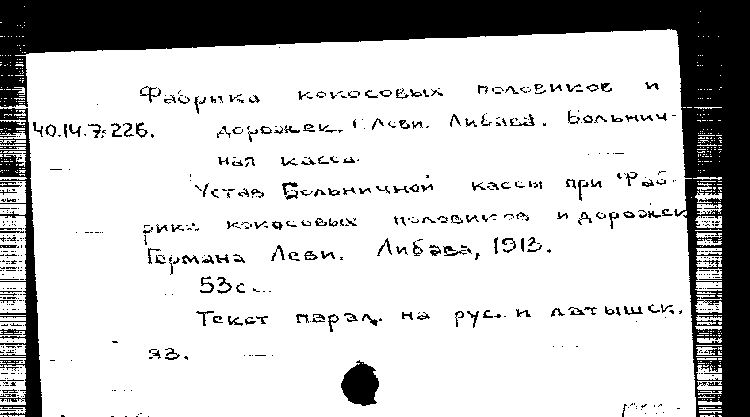 Фабрика кокосовых половиков и
40.14.7.226. дорожек Г. Леви. Либава. Больнич-
ная касса.
Устав Больничной кассы при Фаб-
рике кокосовых половиков и дорожек
Германа Леви. Либава, 1913.
53 с.
Текст парал. на рус. и латышск.
яз.